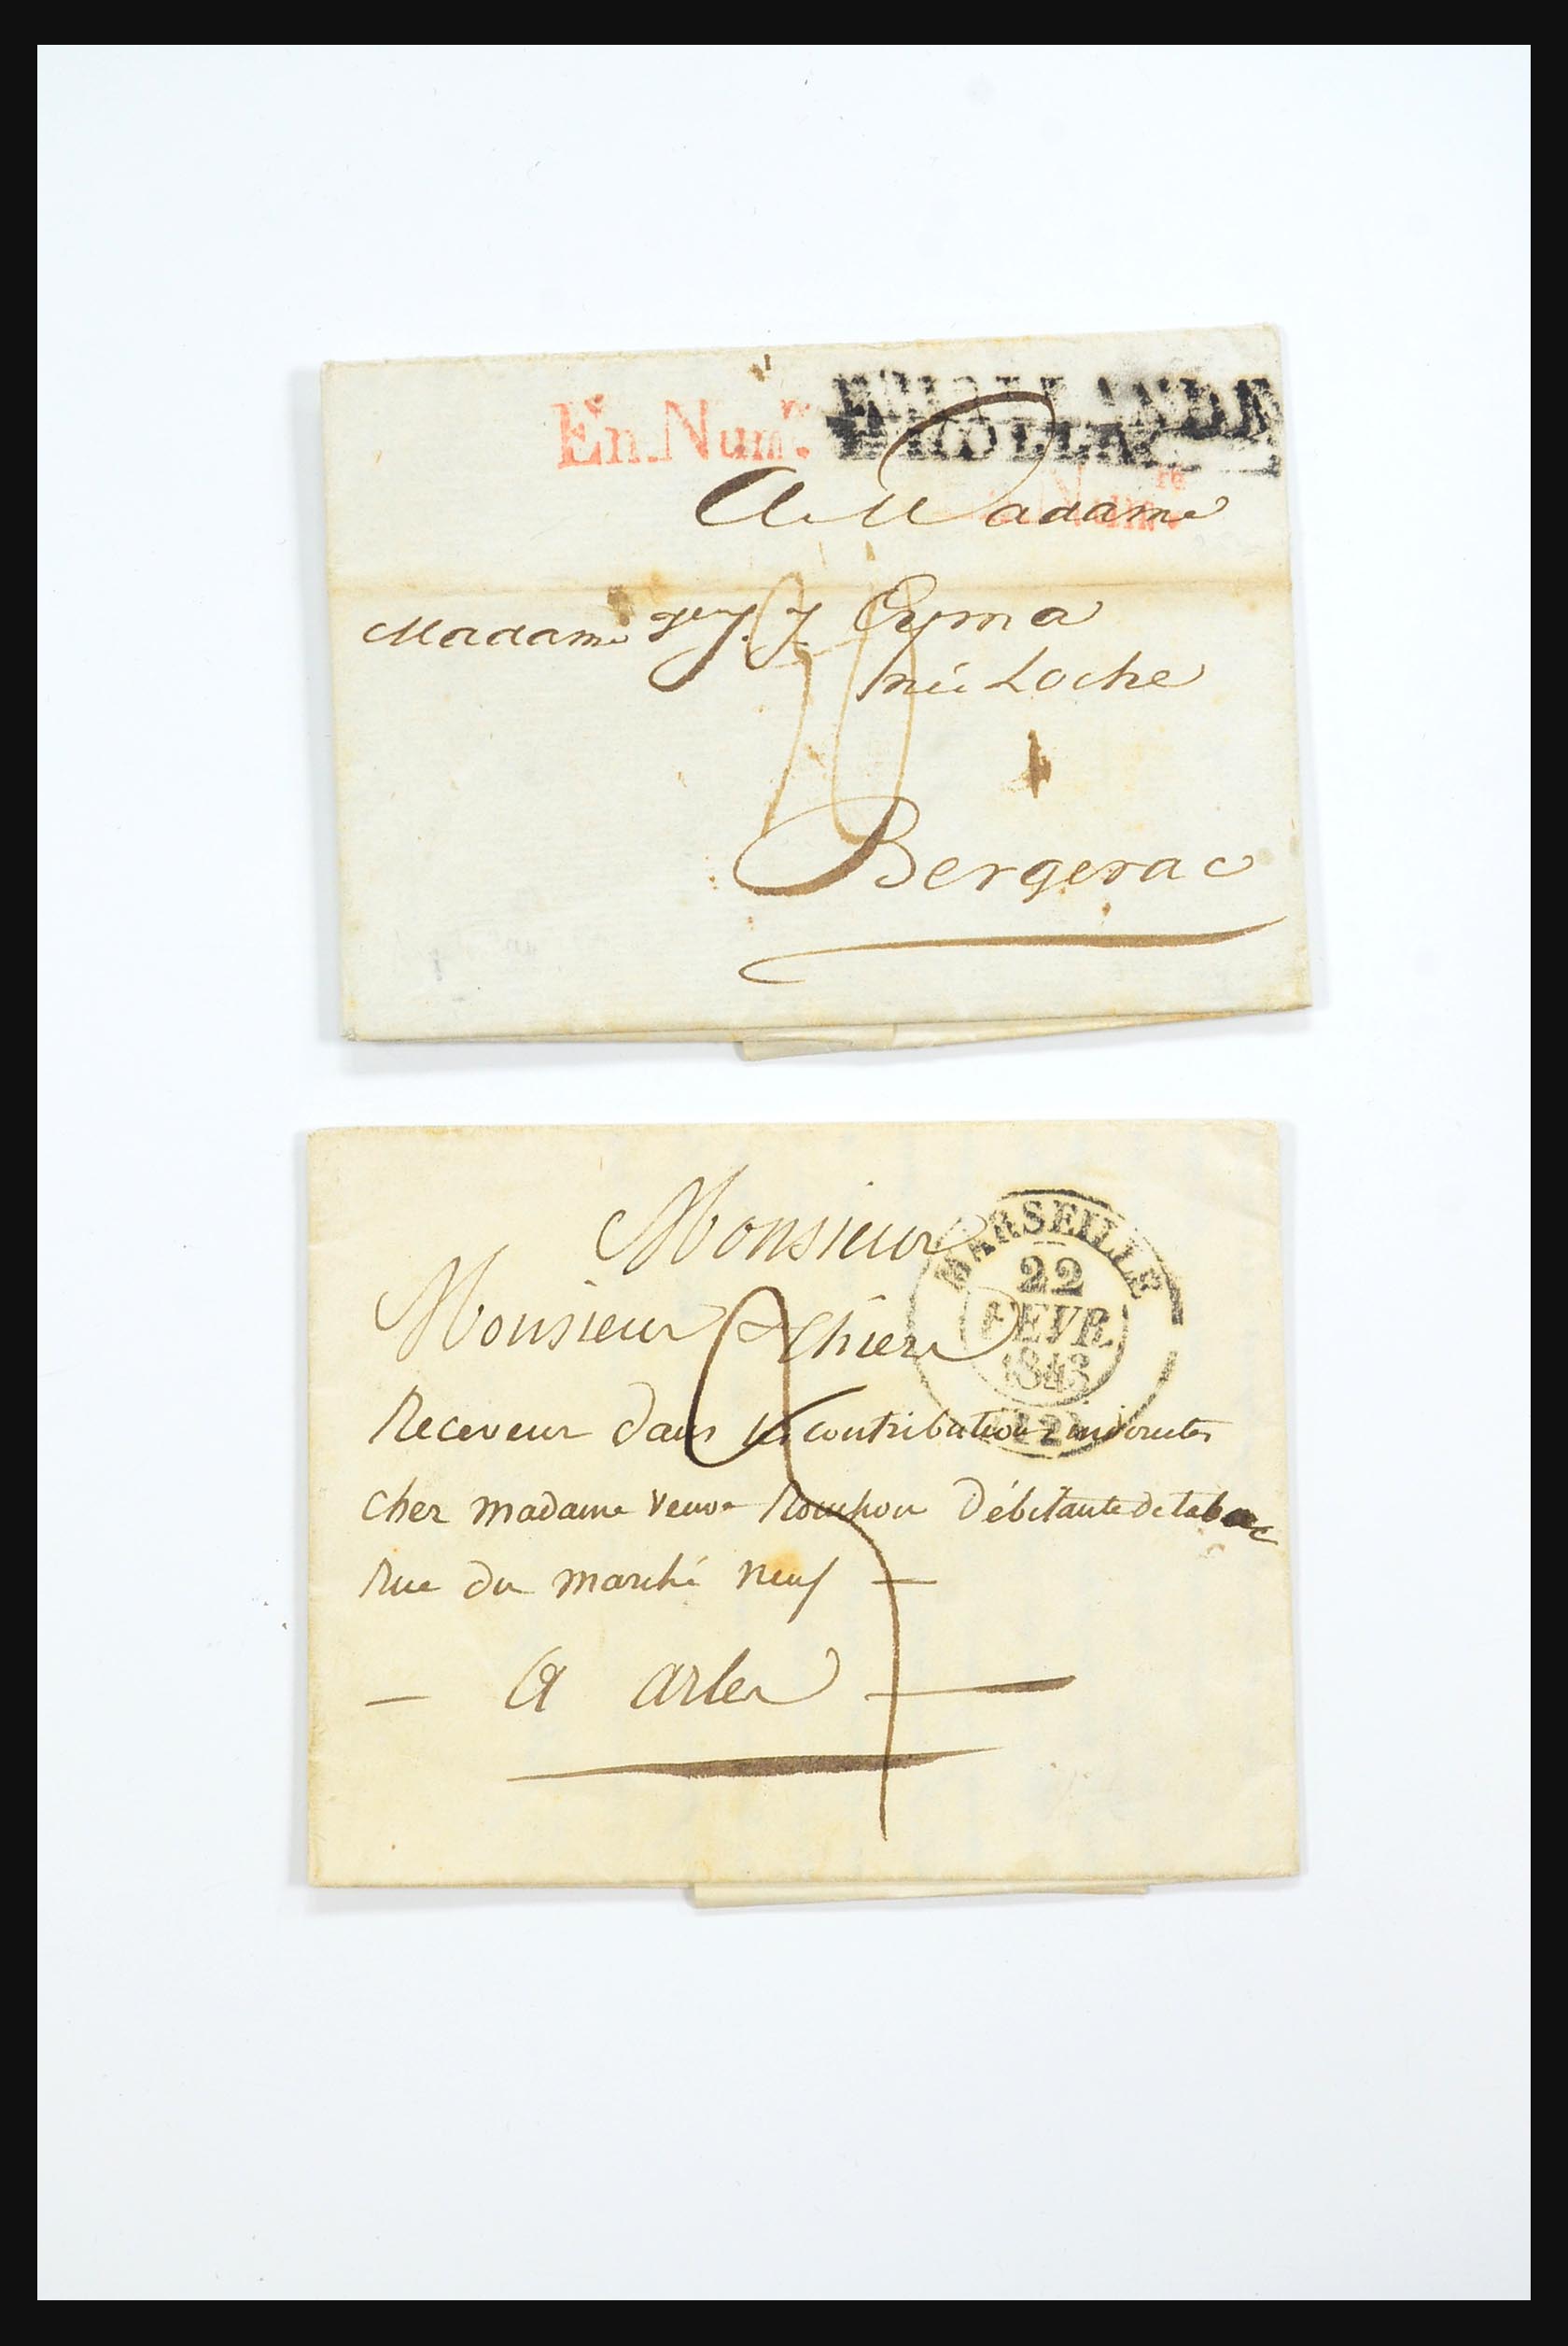 En.Num.re HOLLANDE
HOLLA
A Madame
Madame J. J. Eyma
née Loche
Bergerac
Monsieur
MARSEILLE
22
FEVR.
1843
(12)
Monsieur thier
Receveur dans les contributions indirectes
chez madame veuve Débitante de tabac
Rue du marché neuf —
— A arles —